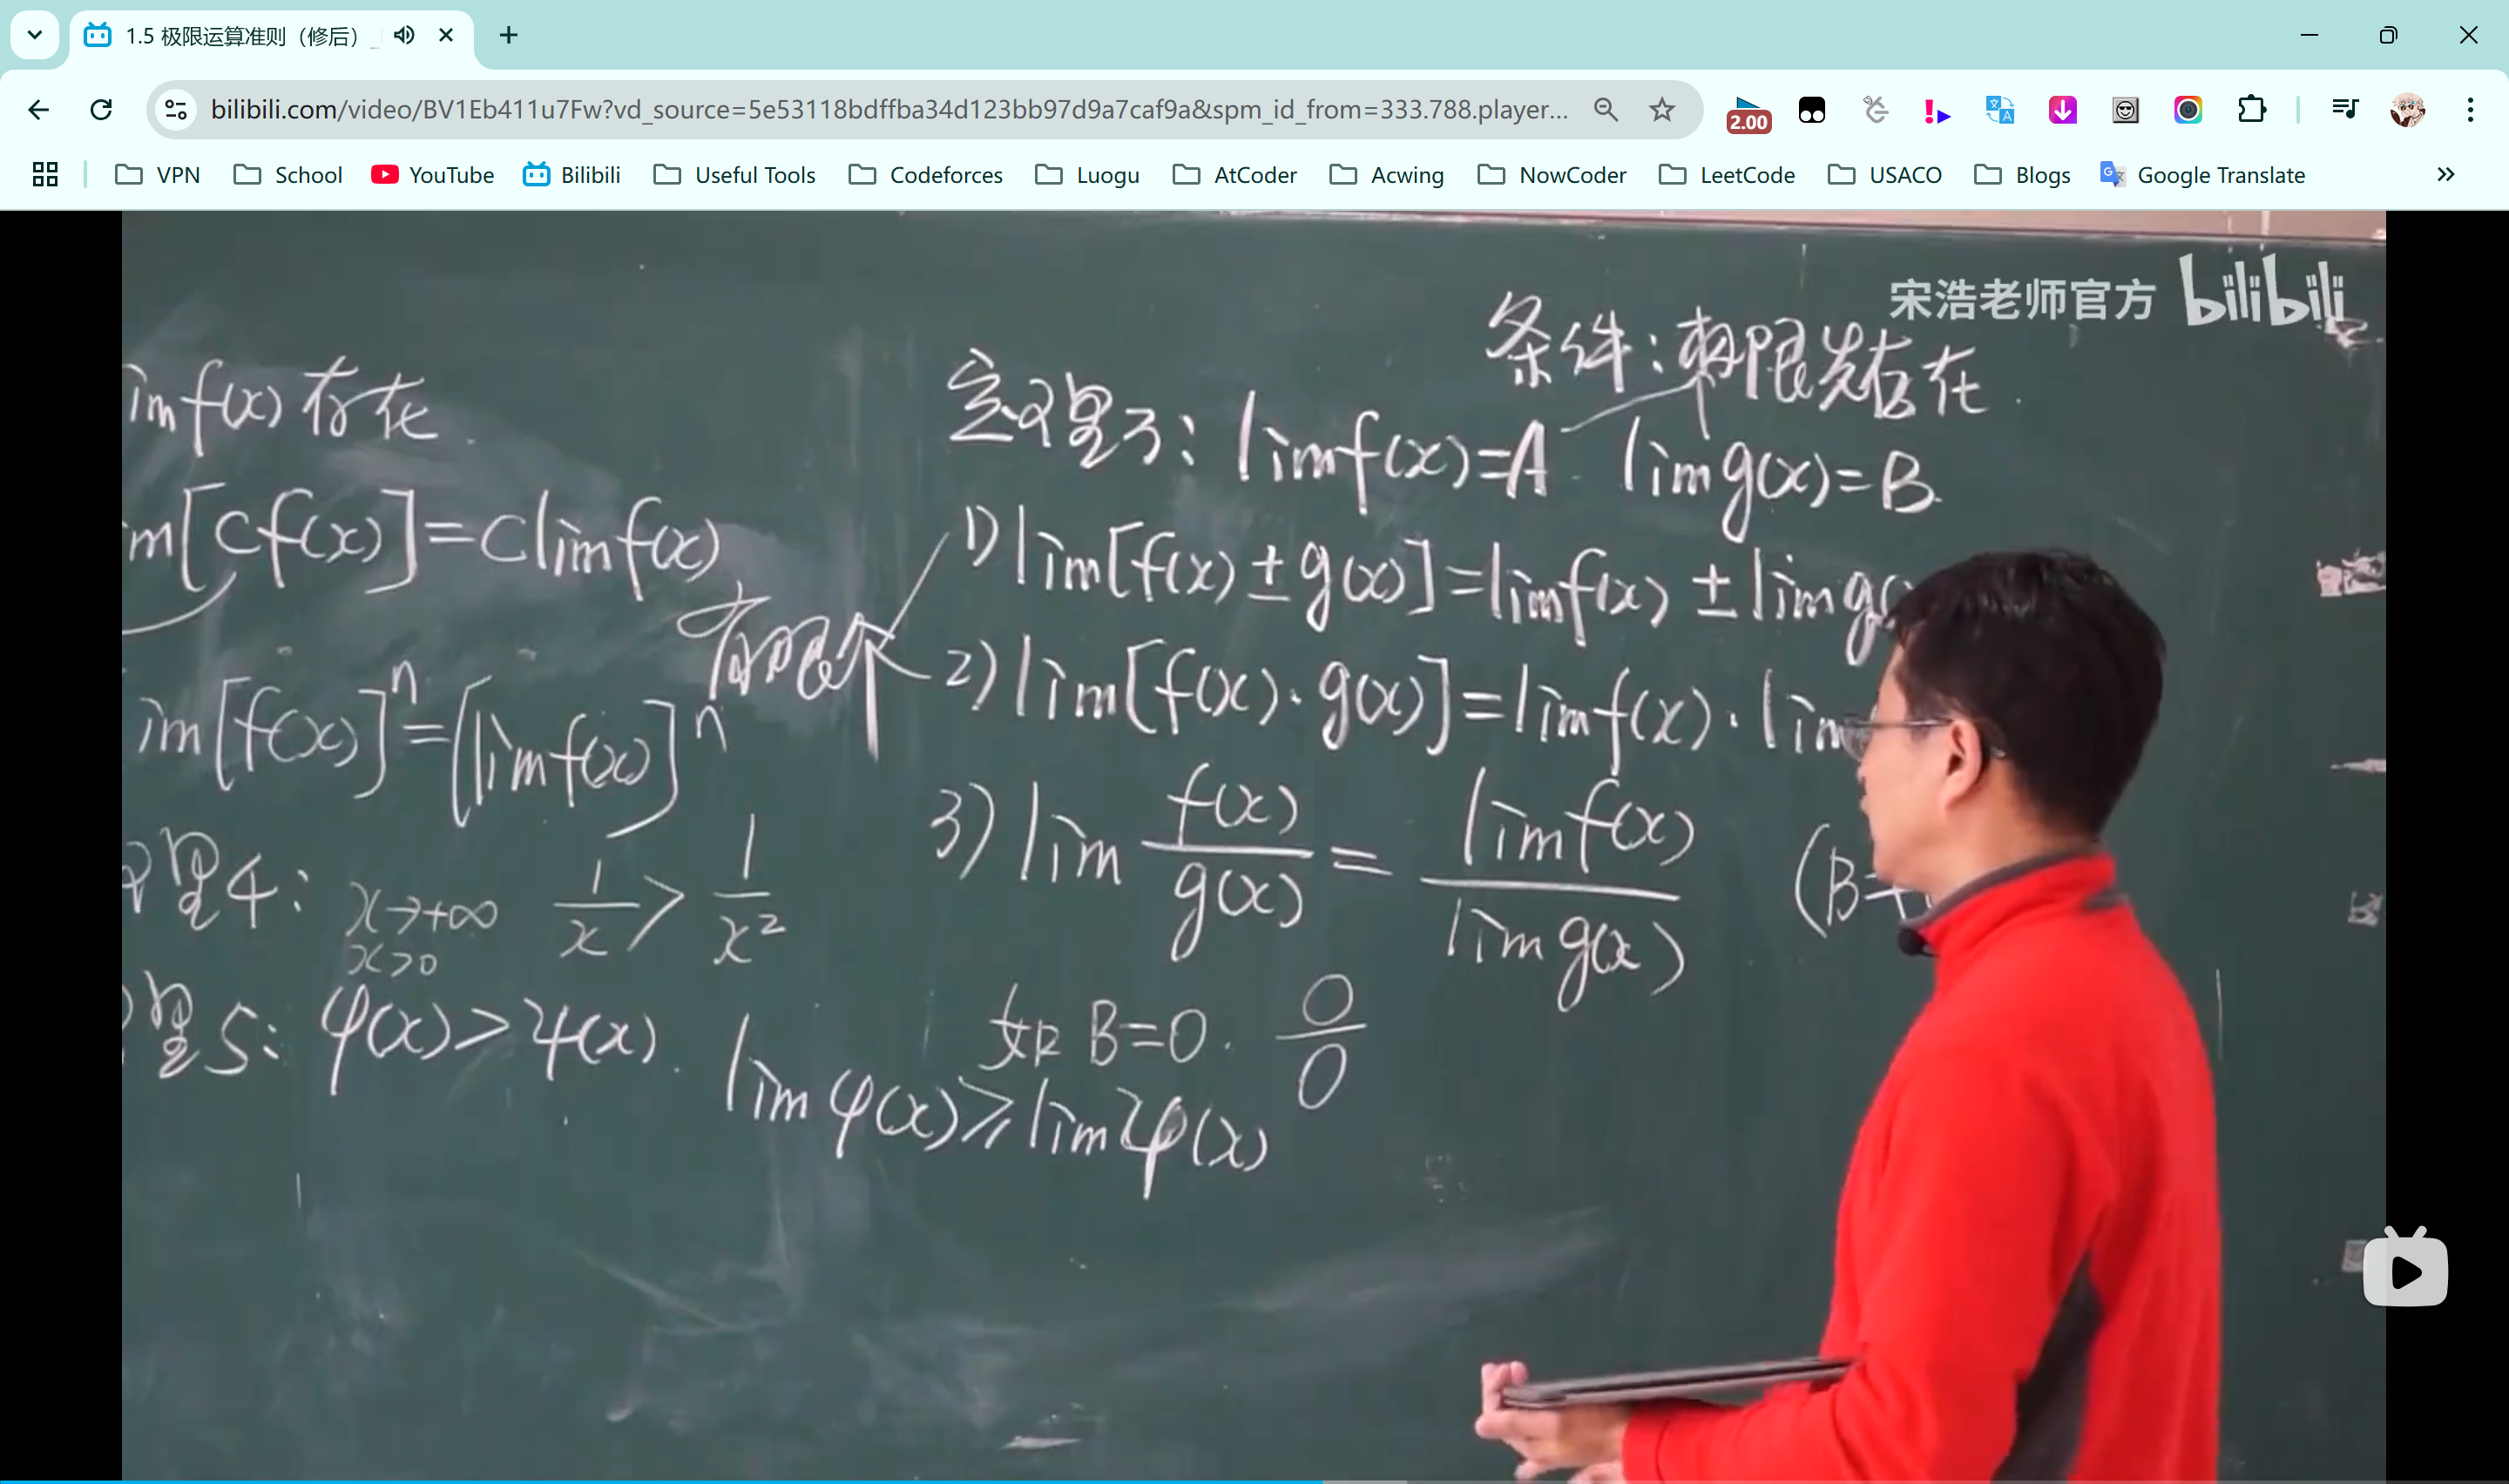 1.5 极限运算准则（修后）_
bilibili.com/video/BV1Eb411u7Fw?vd_source=5e53118bdffba34d123bb97d9a7caf9a&spm_id_from=333.788.player...
2.00
VPN School YouTube Bilibili Useful Tools Codeforces Luogu AtCoder Acwing NowCoder LeetCode USACO Blogs Google Translate
宋浩老师官方 bilibili
条件:极限先存在
定理3: lim f(x)=A lim g(x)=B.
1) lim[f(x)±g(x)]=lim f(x) ± lim g(
2) lim[f(x)·g(x)]=lim f(x)·lim
3) lim f(x)/g(x) = lim f(x)/lim g(x) (B≠
如 B=0. 0/0
im f(x) 存在.
m[Cf(x)]=C lim f(x)
有限个
im[f(x)]^n=[lim f(x)]^n
理4: x→+∞ 1/x > 1/x²
x>0
理5: φ(x)>ψ(x). lim φ(x)≥lim ψ(x)